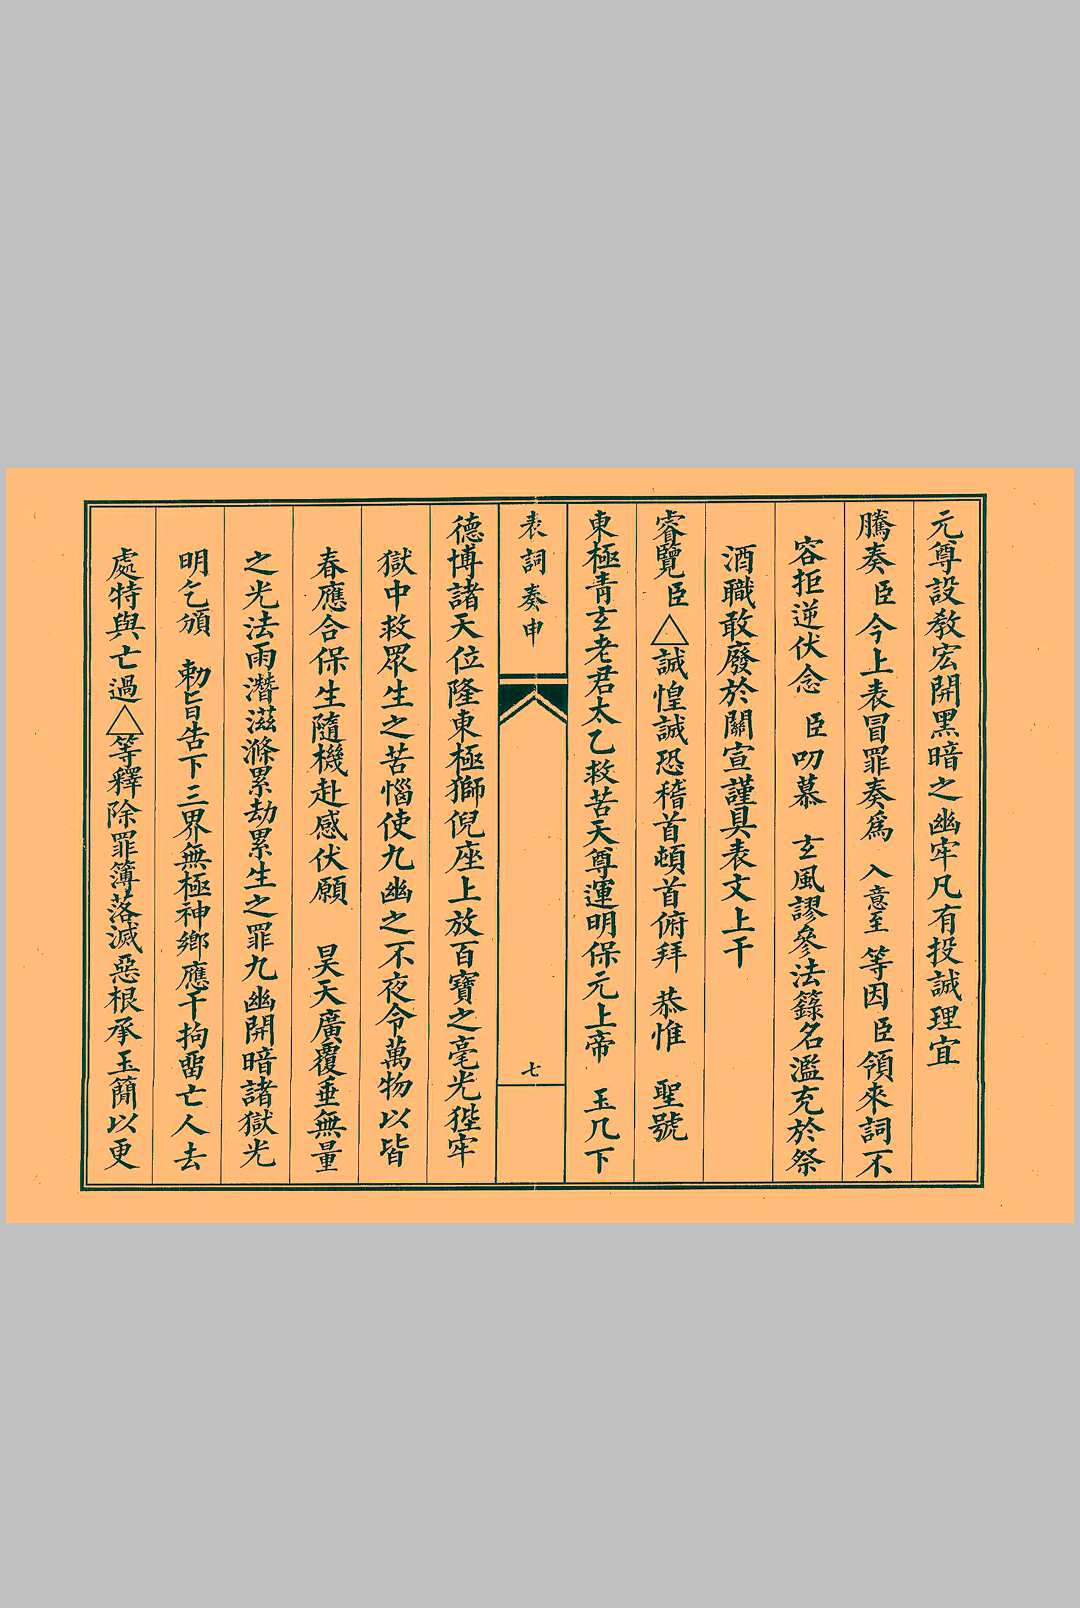 元尊設教宏開黑暗之幽牢凡有投誠理宜
騰奏 臣今上表冒罪奏爲 入意至 等因 臣領來詞不
容拒逆伏念 臣叨慕 玄風謬參法籙名濫充於祭
酒職敢廢於關宣謹具表文上干
睿覽 臣△誠惶誠恐稽首頓首俯拜 恭惟 聖號
東極青玄老君太乙救苦天尊運明保元上帝 玉几下
表詞奏申
七
德博諸天位隆東極獅倪座上放百寶之毫光狴牢
獄中救眾生之苦惱使九幽之不夜令萬物以皆
春應合保生隨機赴感伏願 昊天廣覆垂無量
之光法雨濳滋滌累劫累生之罪九幽開暗諸獄光
明乞頒 勅旨告下三界無極神鄉應干拘畱亡人去
處特與亡過△等釋除罪簿落滅惡根承玉簡以更